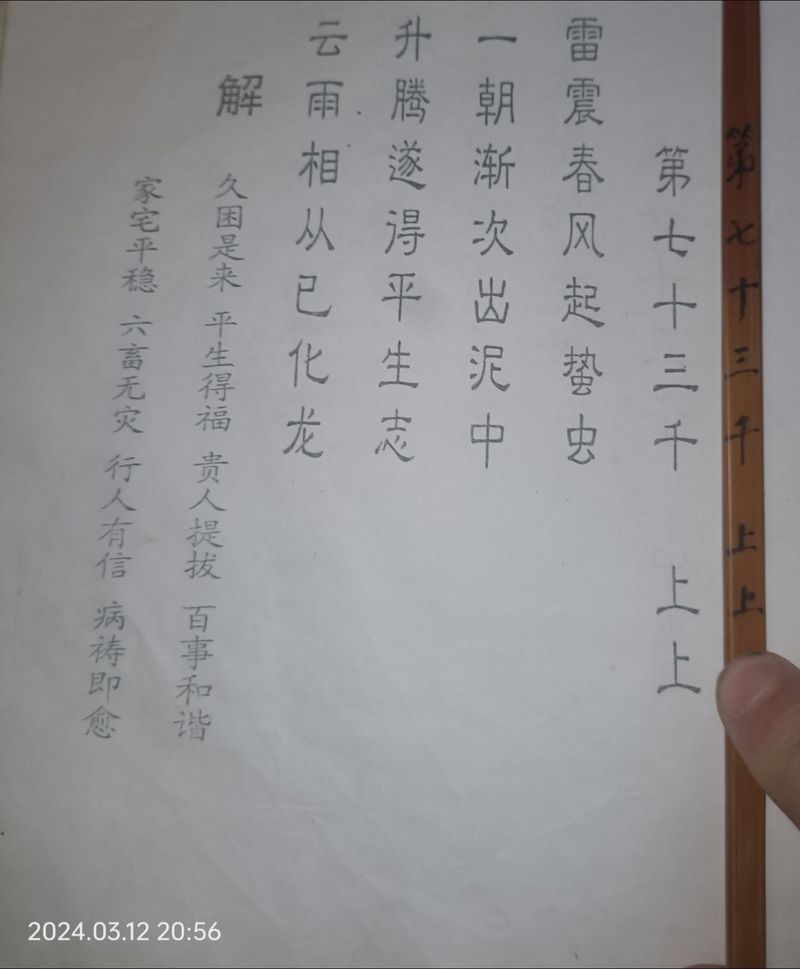 第七十三千 上上
第七十三千 上上
雷震春风起蛰虫
一朝渐次出泥中
升腾遂得平生志
云雨相从已化龙
解
久困是来 平生得福 贵人提拔 百事和谐
家宅平稳 六畜无灾 行人有信 病祷即愈
2024.03.12 20:56